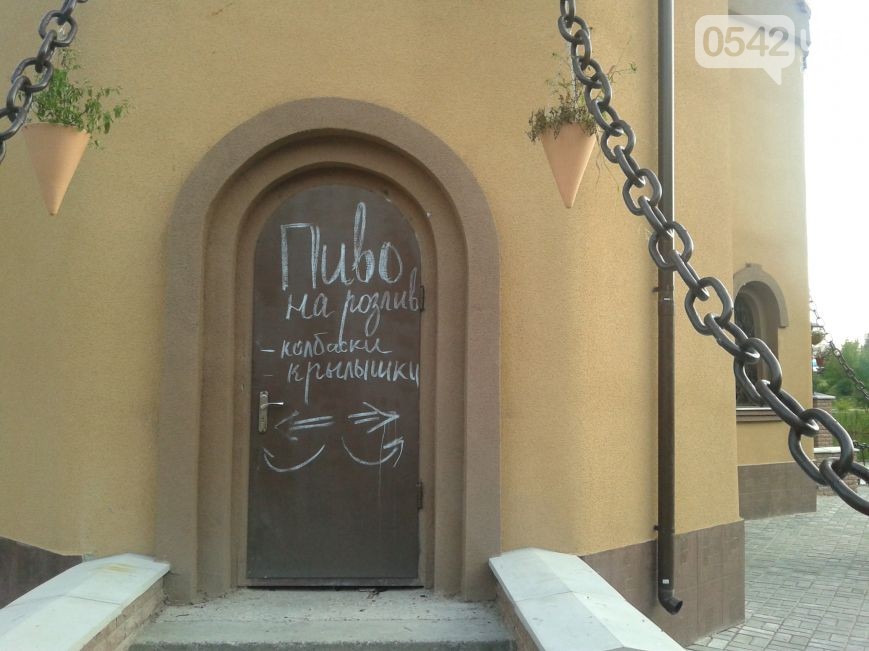 0542
Пиво
на розлив
- колбаски
- крылышки